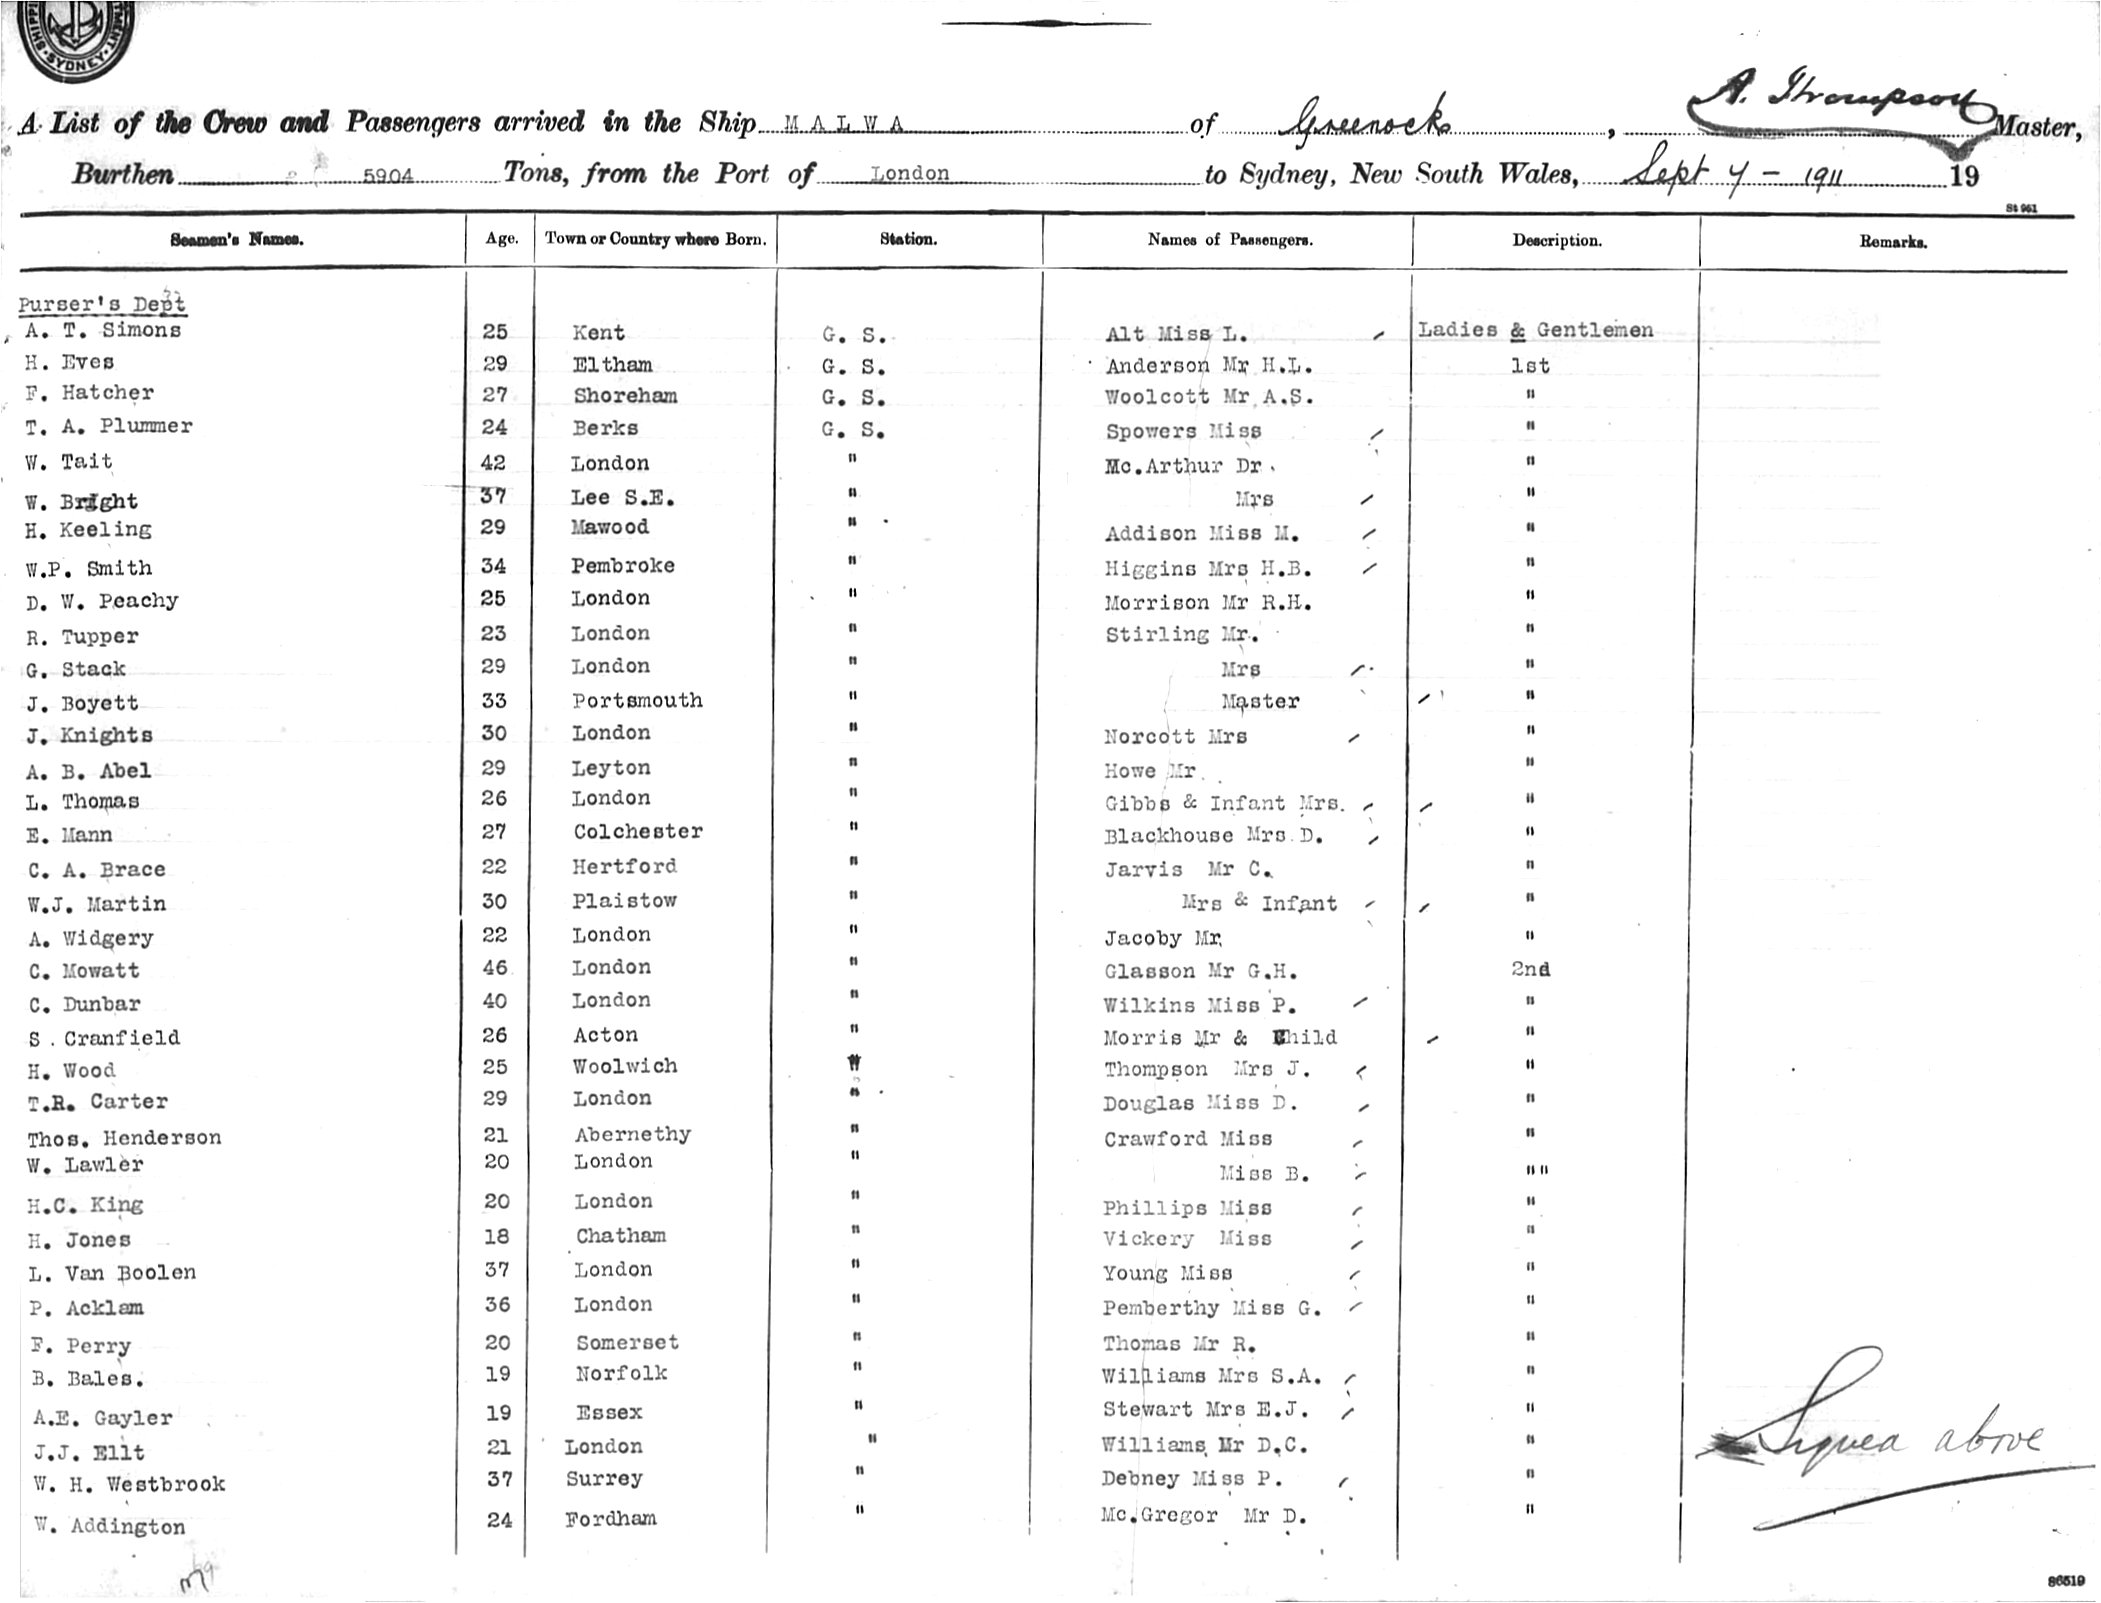 SHIPPI TMENT. SYDNEY
A List of the Crew and Passengers arrived in the Ship MALWA of Greenock, A. Thompson Master,
Burthen 5904 Tons, from the Port of London to Sydney, New South Wales, Sept 4 - 1911 19
St 961
Seamen's Names. Age. Town or Country where Born. Station. Names of Passengers. Description. Remarks.
Purser's Dept
A. T. Simons 25 Kent G. S. Alt Miss L. Ladies & Gentlemen
H. Eves 29 Eltham G. S. Anderson Mr H.L. 1st
F. Hatcher 27 Shoreham G. S. Woolcott Mr A.S. "
T. A. Plummer 24 Berks G. S. Spowers Miss "
W. Tait 42 London " Mc.Arthur Dr. "
W. Bright 37 Lee S.E. " Mrs "
H. Keeling 29 Mawood " Addison Miss M. "
W.P. Smith 34 Pembroke " Higgins Mrs H.B. "
D. W. Peachy 25 London " Morrison Mr R.H. "
R. Tupper 23 London " Stirling Mr. "
G. Stack 29 London " Mrs "
J. Boyett 33 Portsmouth " Master "
J. Knights 30 London " Norcott Mrs "
A. B. Abel 29 Leyton " Howe Mr "
L. Thomas 26 London " Gibbs & Infant Mrs. "
E. Mann 27 Colchester " Blackhouse Mrs D. "
C. A. Brace 22 Hertford " Jarvis Mr C. "
W.J. Martin 30 Plaistow " Mrs & Infant "
A. Widgery 22 London " Jacoby Mr "
C. Mowatt 46 London " Glasson Mr G.H. 2nd
C. Dunbar 40 London " Wilkins Miss P. "
S. Cranfield 26 Acton " Morris Mr & Child "
H. Wood 25 Woolwich " Thompson Mrs J. "
T.R. Carter 29 London " Douglas Miss D. "
Thos. Henderson 21 Abernethy " Crawford Miss "
W. Lawler 20 London " Miss B. ""
H.C. King 20 London " Phillips Miss "
H. Jones 18 Chatham " Vickery Miss "
L. Van Boolen 37 London " Young Miss "
P. Acklam 36 London " Pemberthy Miss G. "
F. Perry 20 Somerset " Thomas Mr R. "
B. Bales. 19 Norfolk " Williams Mrs S.A. "
A.E. Gayler 19 Essex " Stewart Mrs E.J. "
J.J. Ellt 21 London " Williams Mr D.C. " Signed above
W. H. Westbrook 37 Surrey " Debney Miss P. "
W. Addington 24 Fordham " Mc.Gregor Mr D. "
86519